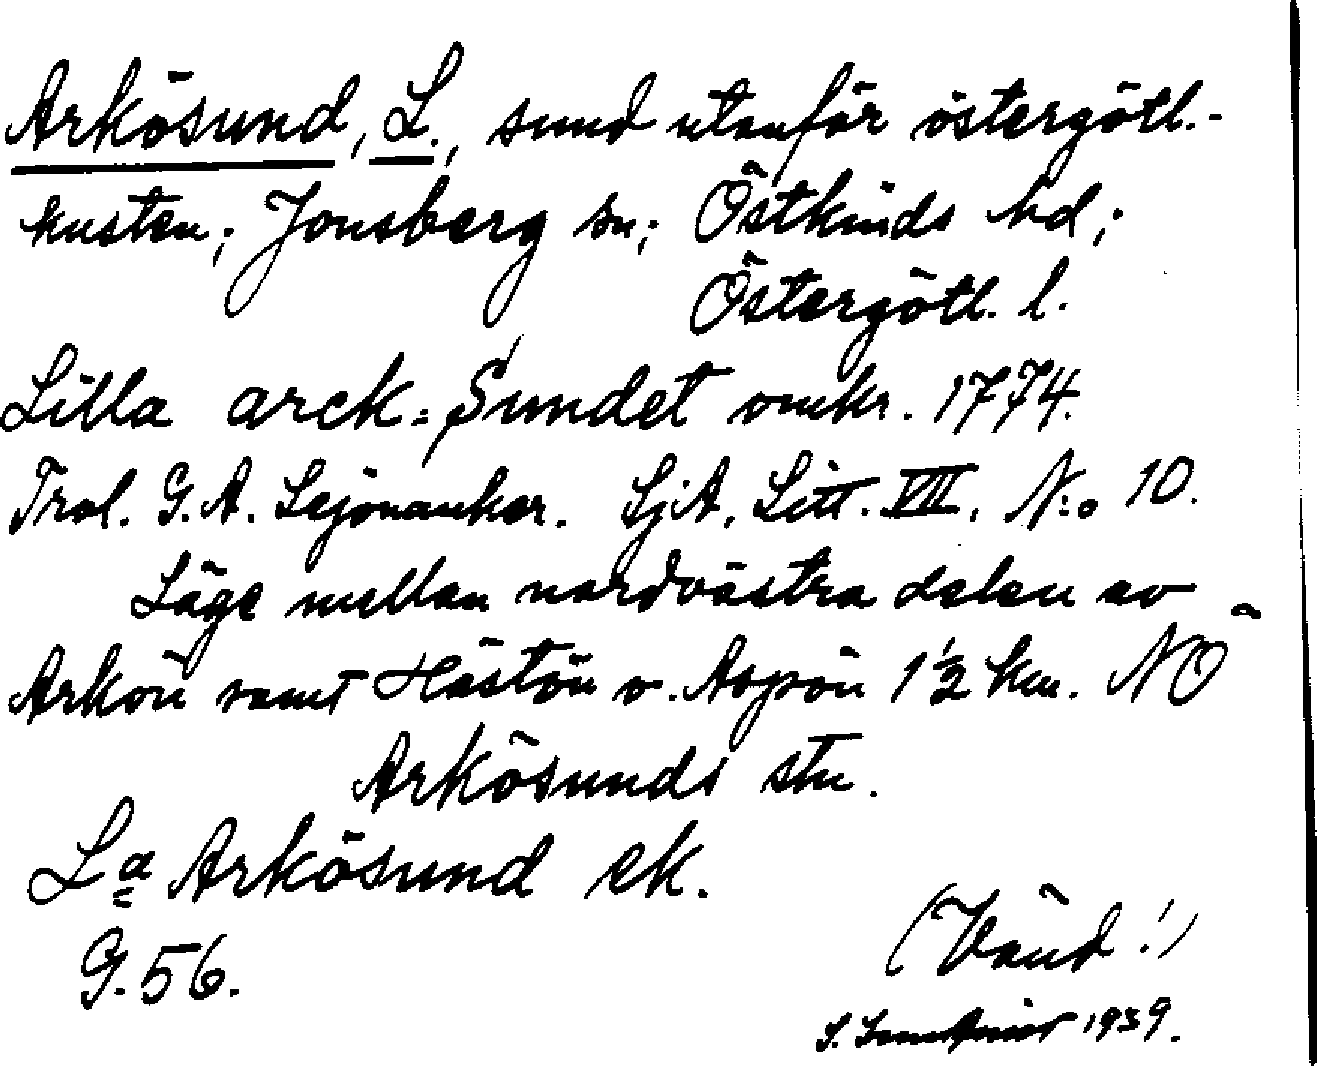 Arkösund, L., sund utanför östergötl.-
kusten; Jonsberg sn; Östkinds hd;
Östergötl. l.
Lilla arck= Sundet omkr. 1774.
Trol. G. A. Lejonanker. SjA, Litt. VIII, N:o 10.
Läge mellan nordvästra delen av
Arkön samt Hästön o. Aspön 1½ km. NÖ
Arkösunds stn.
La Arkösund ek.
G. 56.
(Vänd!)
S. 1939.